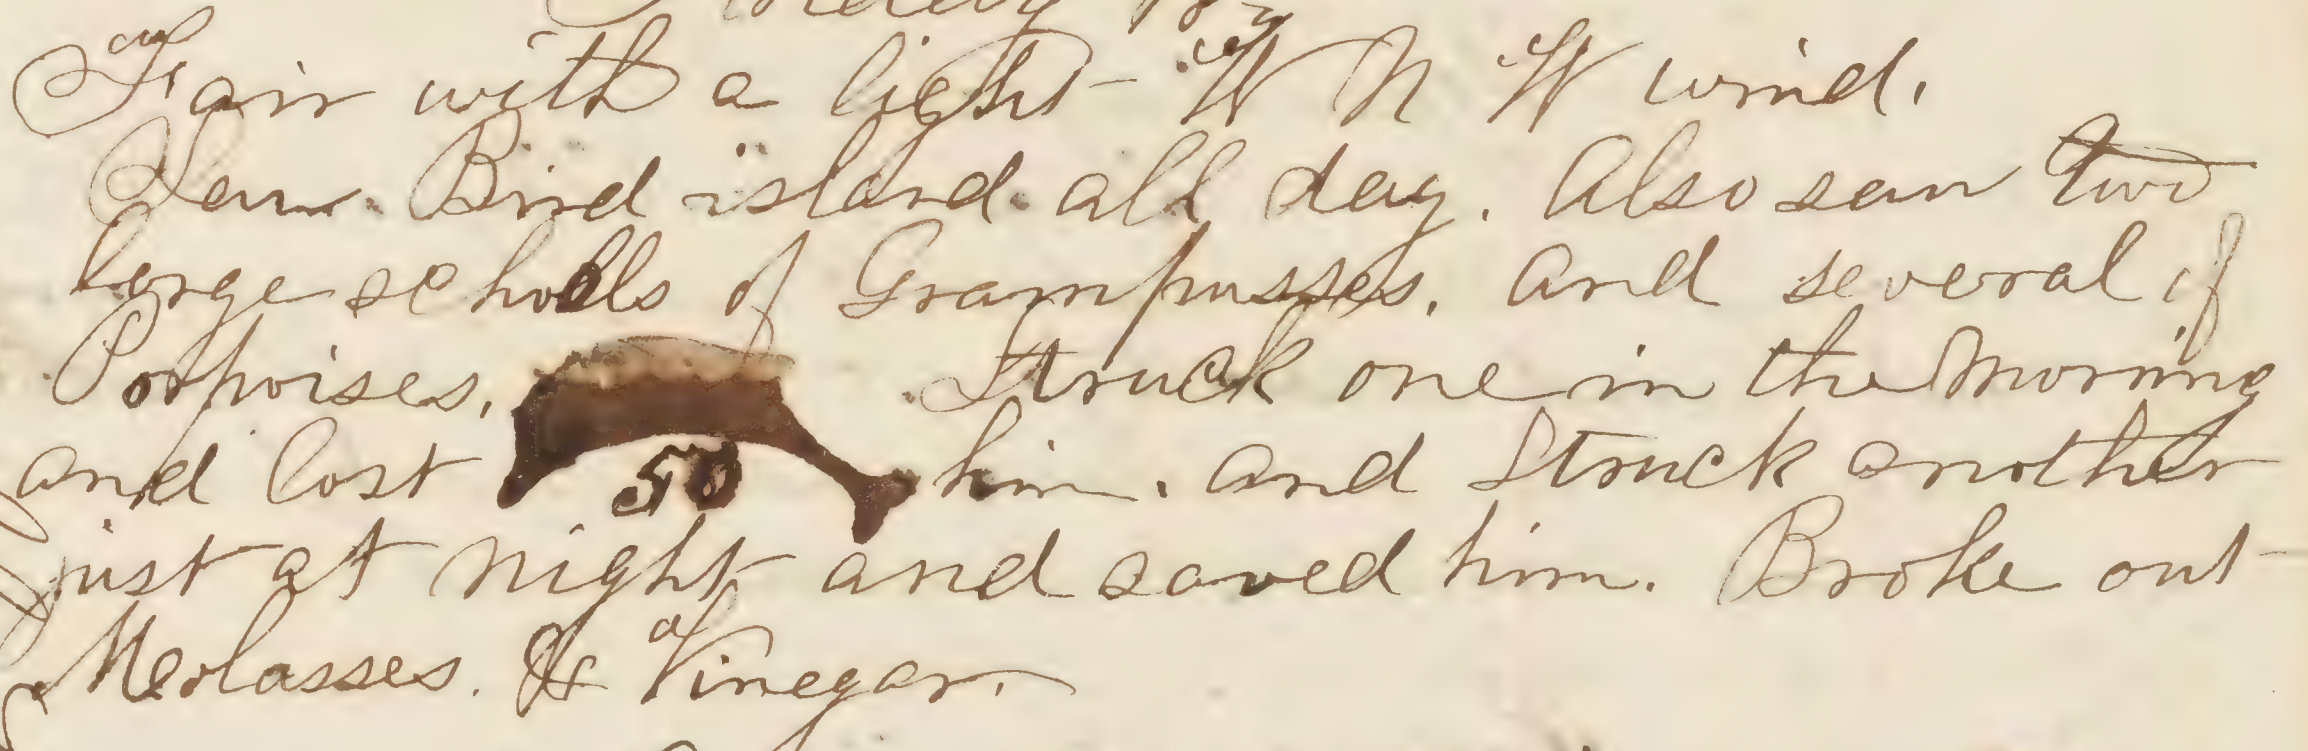 Fair with a light W N W wind.
Saw Bird island all day. Also saw two
large scholls of Grampusses. and several of
Porpoises. Struck one in the morning
and lost 50 him. and Struck another
just at night and saved him. Broke out
Merlasses. & Vinegar.